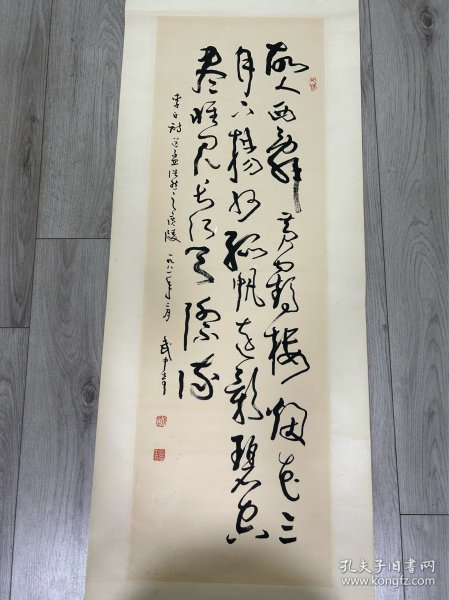 故人西辞黄鹤楼烟花三
月下扬州孤帆远影碧空
尽唯见长江天际流
李白诗送孟浩然之广陵 一九八一年二月 武中奇
孔夫子旧书网
www.kongfz.com